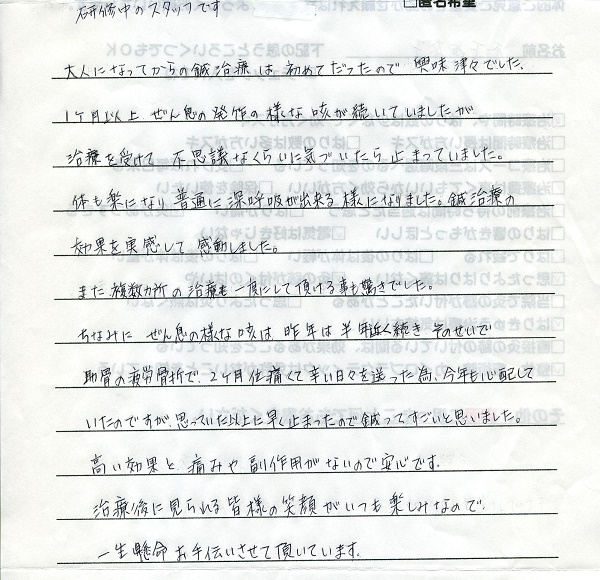 研修中のスタッフです
□匿名希望
大人になってからの鍼治療は初めてだったので 興味津々でした。
1ヶ月以上 ぜん息の発作の様な咳が続いていましたが
治療を受けて 不思議なくらいに気づいたら止まっていました。
体も楽になり普通に深呼吸が出来る様になりました。鍼治療の
効果を実感して 感動しました。
また 複数カ所の治療を一度にして頂ける事も驚きでした。
ちなみに ぜん息の様な咳は昨年は半年近く続き そのせいで
肋骨の疲労骨折で、2ヶ月位痛くて辛い日々を送った為、今年も心配して
いたのですが、思っていた以上に早く止まったので鍼ってすごいと思いました。
高い効果と 痛みや副作用がないので安心です。
治療後に見られる皆様の笑顔がいつも楽しみなので、
一生懸命お手伝いさせて頂いています。